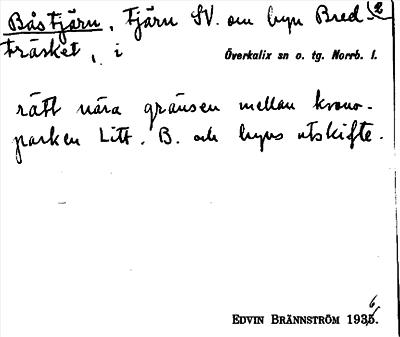 Båstjärn, tjärn SV. om byn Bred- (2
träsket, i
Överkalix sn o. tg. Norrb. l.
rätt nära gränsen mellan krono-
parken Litt. B. och byns utskifte.
EDVIN BRÄNNSTRÖM 1936.